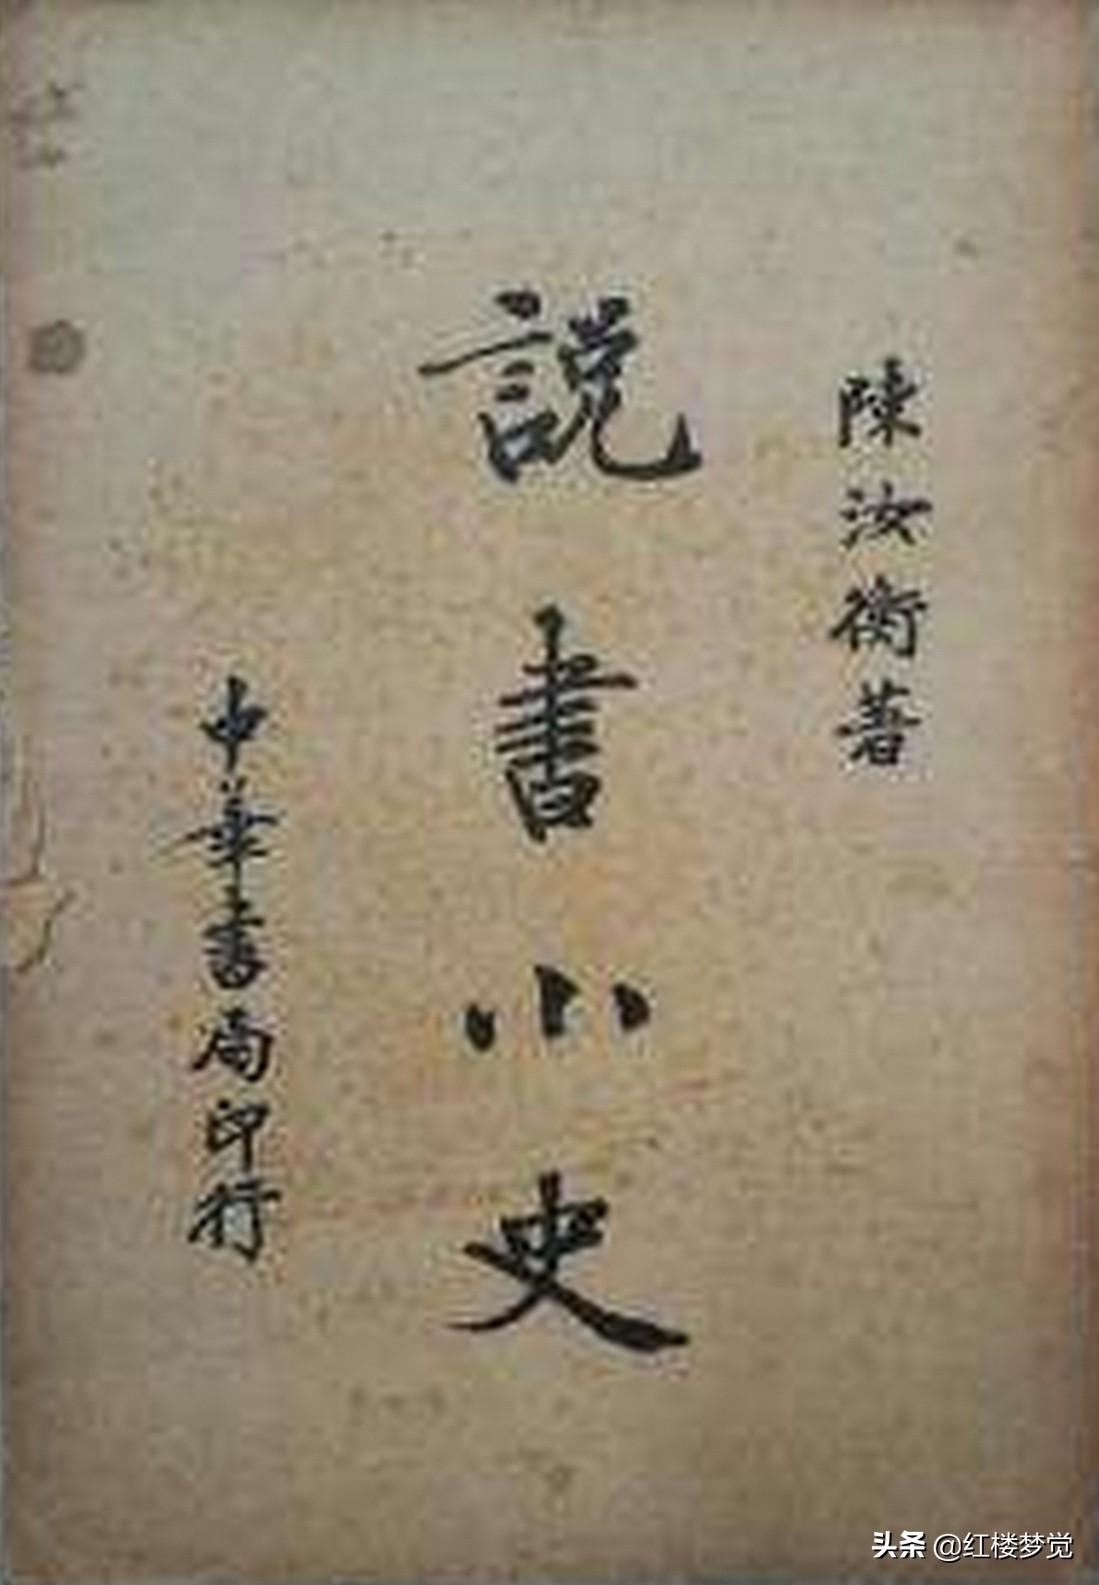 陳汝衡著
說書小史
中華書局印行
头条 @红楼梦觉